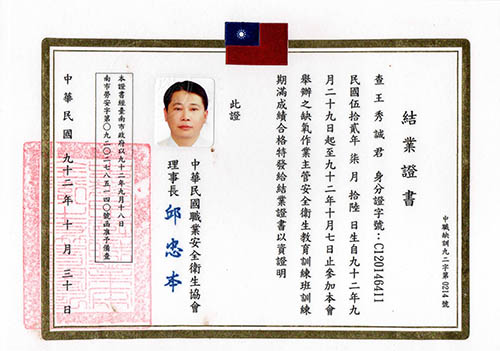 結業證書
中職缺訓九二字第0214號
查王秀誠君 身分證字號：C120146411
民國伍拾貳年 柒 月 拾陸 日生自九十二年九
月二十九日起至九十二年十月七日止參加本會
舉辦之缺氧作業主管安全衛生教育訓練班訓練
期滿成績合格特發給結業證書以資證明
此證
中華民國職業安全衛生協會
理事長 邱忠本
本證書經臺南市政府以九十二年九月十八日
南市勞安字第〇九二〇二七八五一四〇號函准予備查
中華民國 九十二年 十 月 三十 日